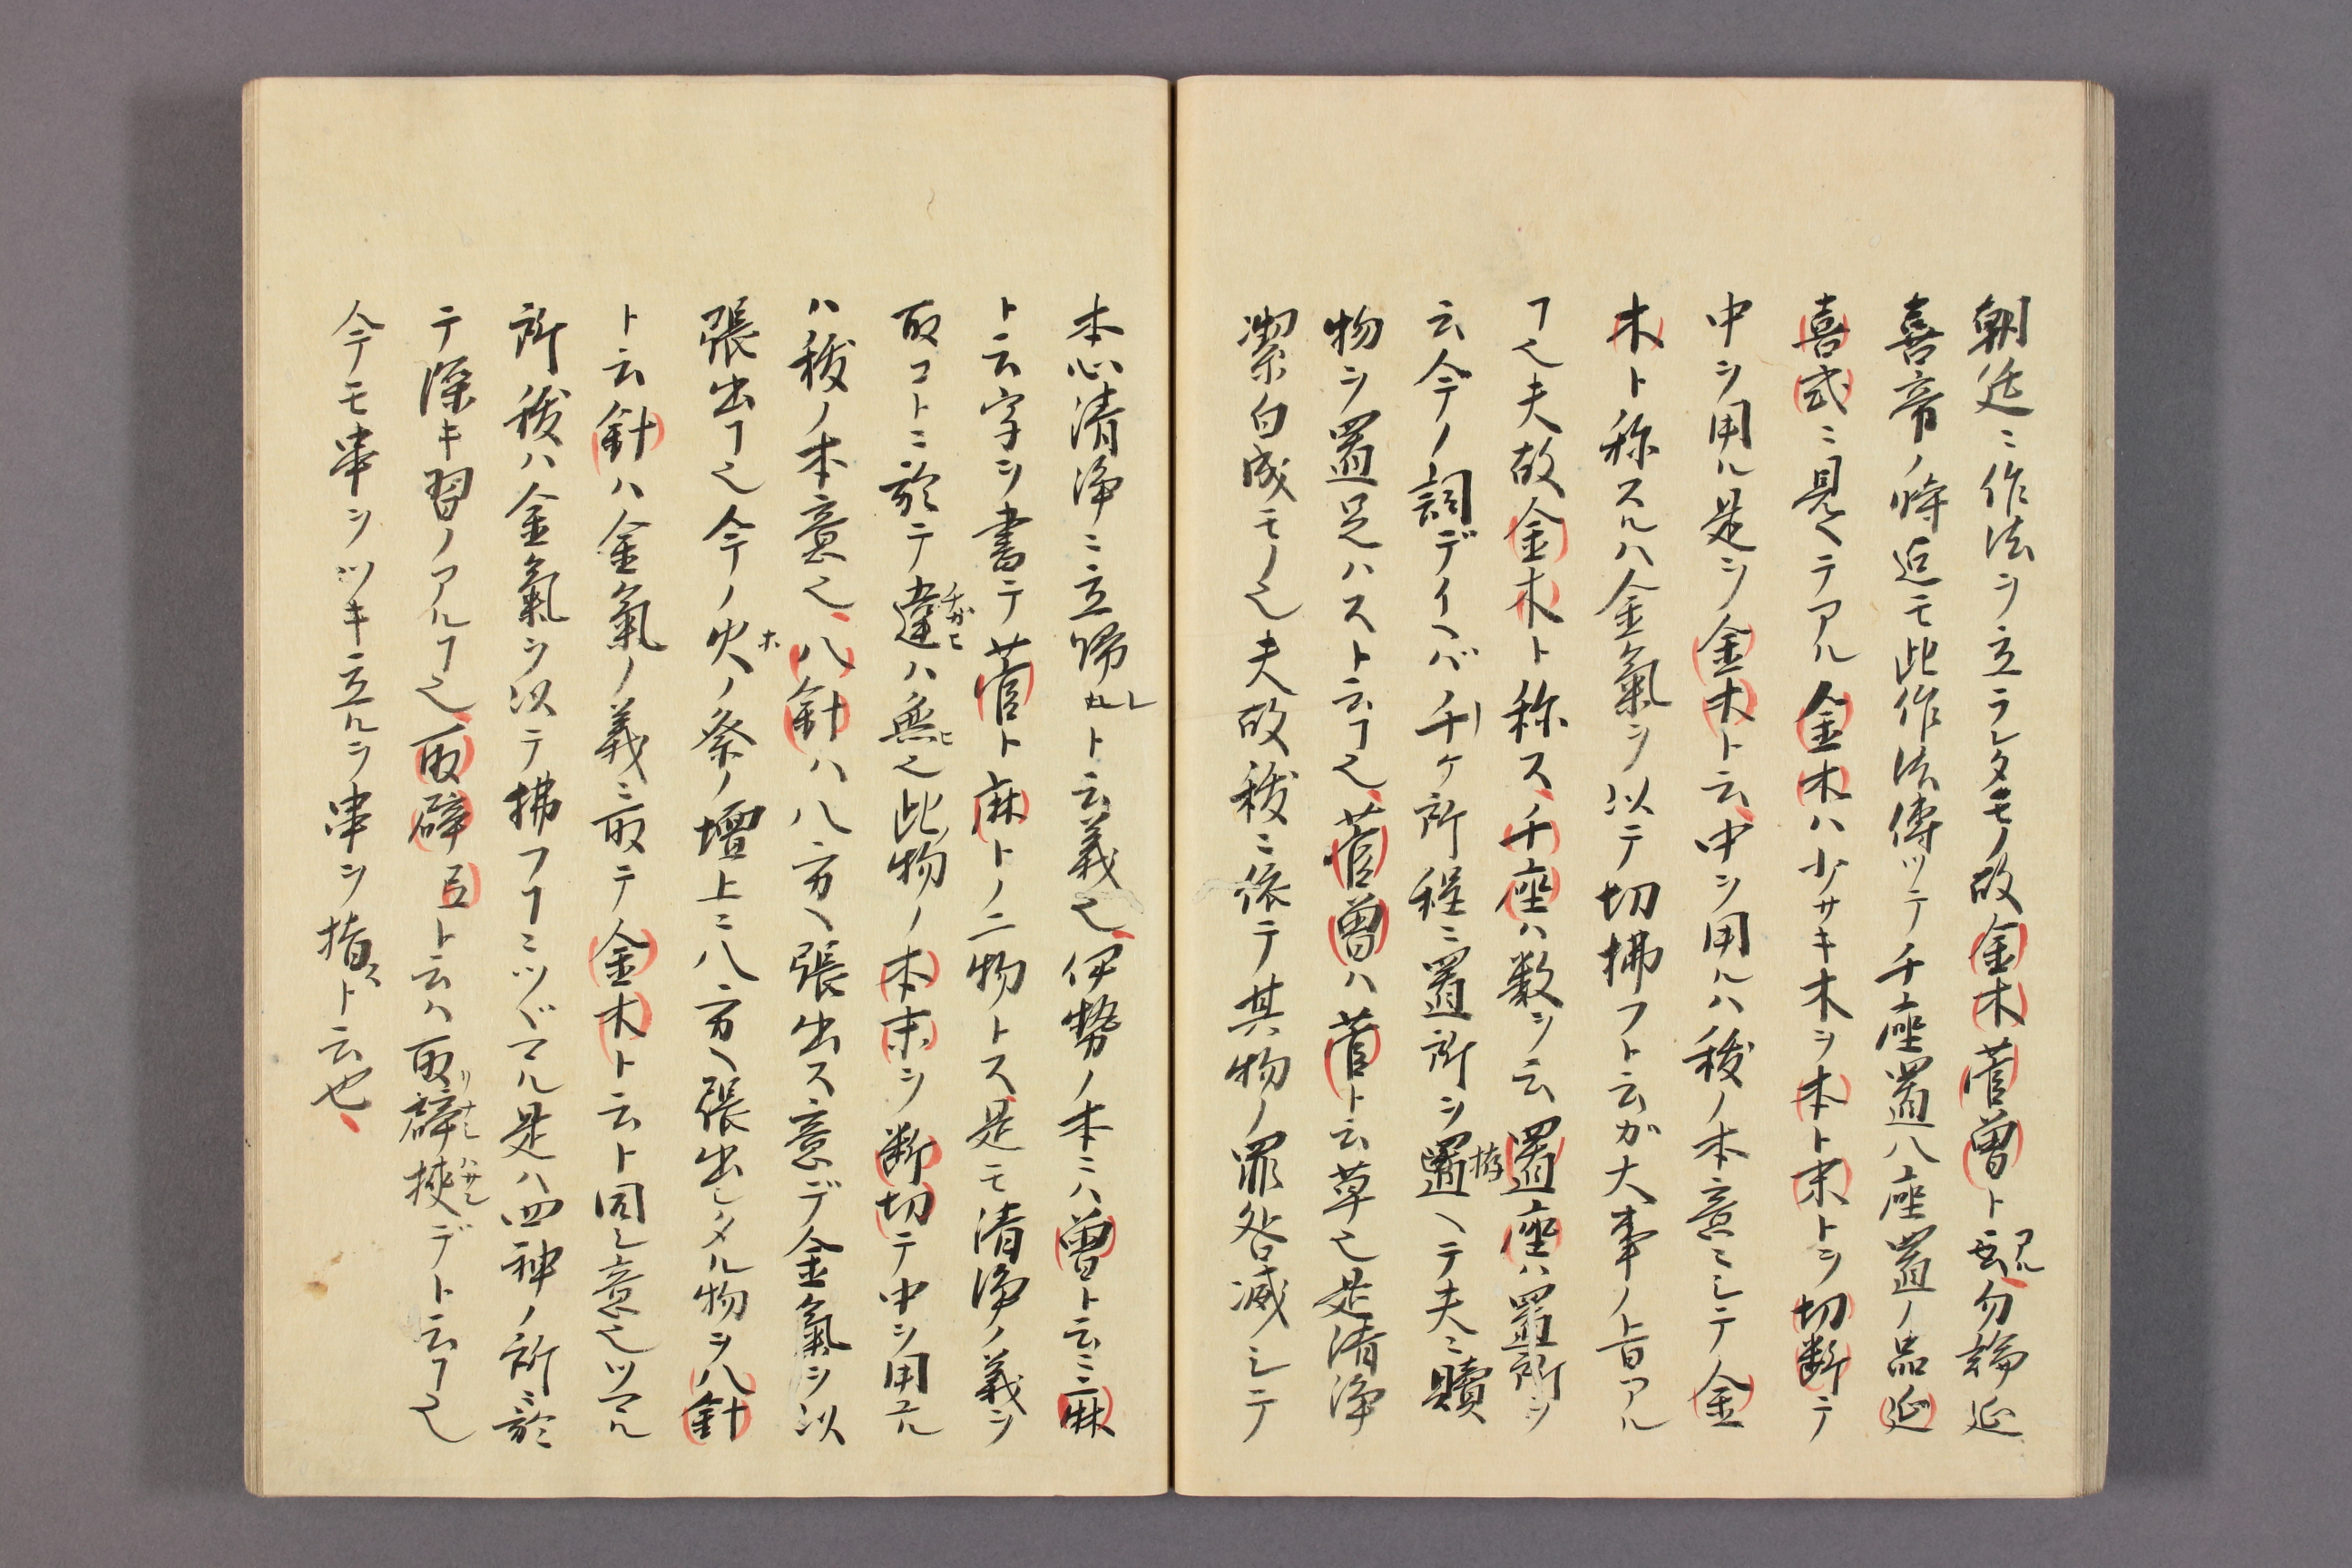 朝廷ニ作法ヲ立ラレタモノ故金木菅曽ト云アル勿論延
喜帝ノ時迄モ此作法傳ツテ千座置八座置ノ品延
喜式ニ見ヘテアル金木ハ少サキ木ヲ本ト末トヲ切断テ
中ヲ用ル是ヲ金木ト云中ヲ用ルハ祓ノ本意ニシテ金
木ト称スルハ金氣ヲ以テ切拂フト云ガ大事ノ旨アル
ヿ也夫故金木ト称ス千座ハ数ヲ云置座ハ置所ヲ
云今ノ詞デイヘバ千ケ所程ニ置所ヲ置ヘテ夫ニ贖
物ヲ置足ハストヿ云也菅曽ハ菅ト云草也是清浄
潔白成モノ也夫故祓ニ依テ其物ノ罪咎滅シテ
本心清浄ニ立帰ルト云義也伊勢ノ本ニハ曽ト云ニ麻
ト云字ヲ書テ菅ト麻トノ二物トス是モ清浄ノ義ヲ
取コトニ於テ違チガヒハ無ヒ也此物ノ本末ヲ断切テ中ヲ用ユル
ハ祓ノ本意也八針ハ八方ヘ張出ス意デ金氣ヲ以
張出ヿ也今ノ火ホノ祭ノ壇上ニ八方ヘ張出シタル物ヲ八針
ト云針ハ金氣ノ義ニ取テ金木ト云ト同シ意也ツマル
所祓ハ金氣ヲ以テ拂フヿニツヾマル是ハ四神ノ所ニ於
テ深キ習ノアルヿ也取辟ト云ハ取辟挾ハサミデト云ヿ也
今モ串ヲツキ立ルヲ串ヲ指スト云也